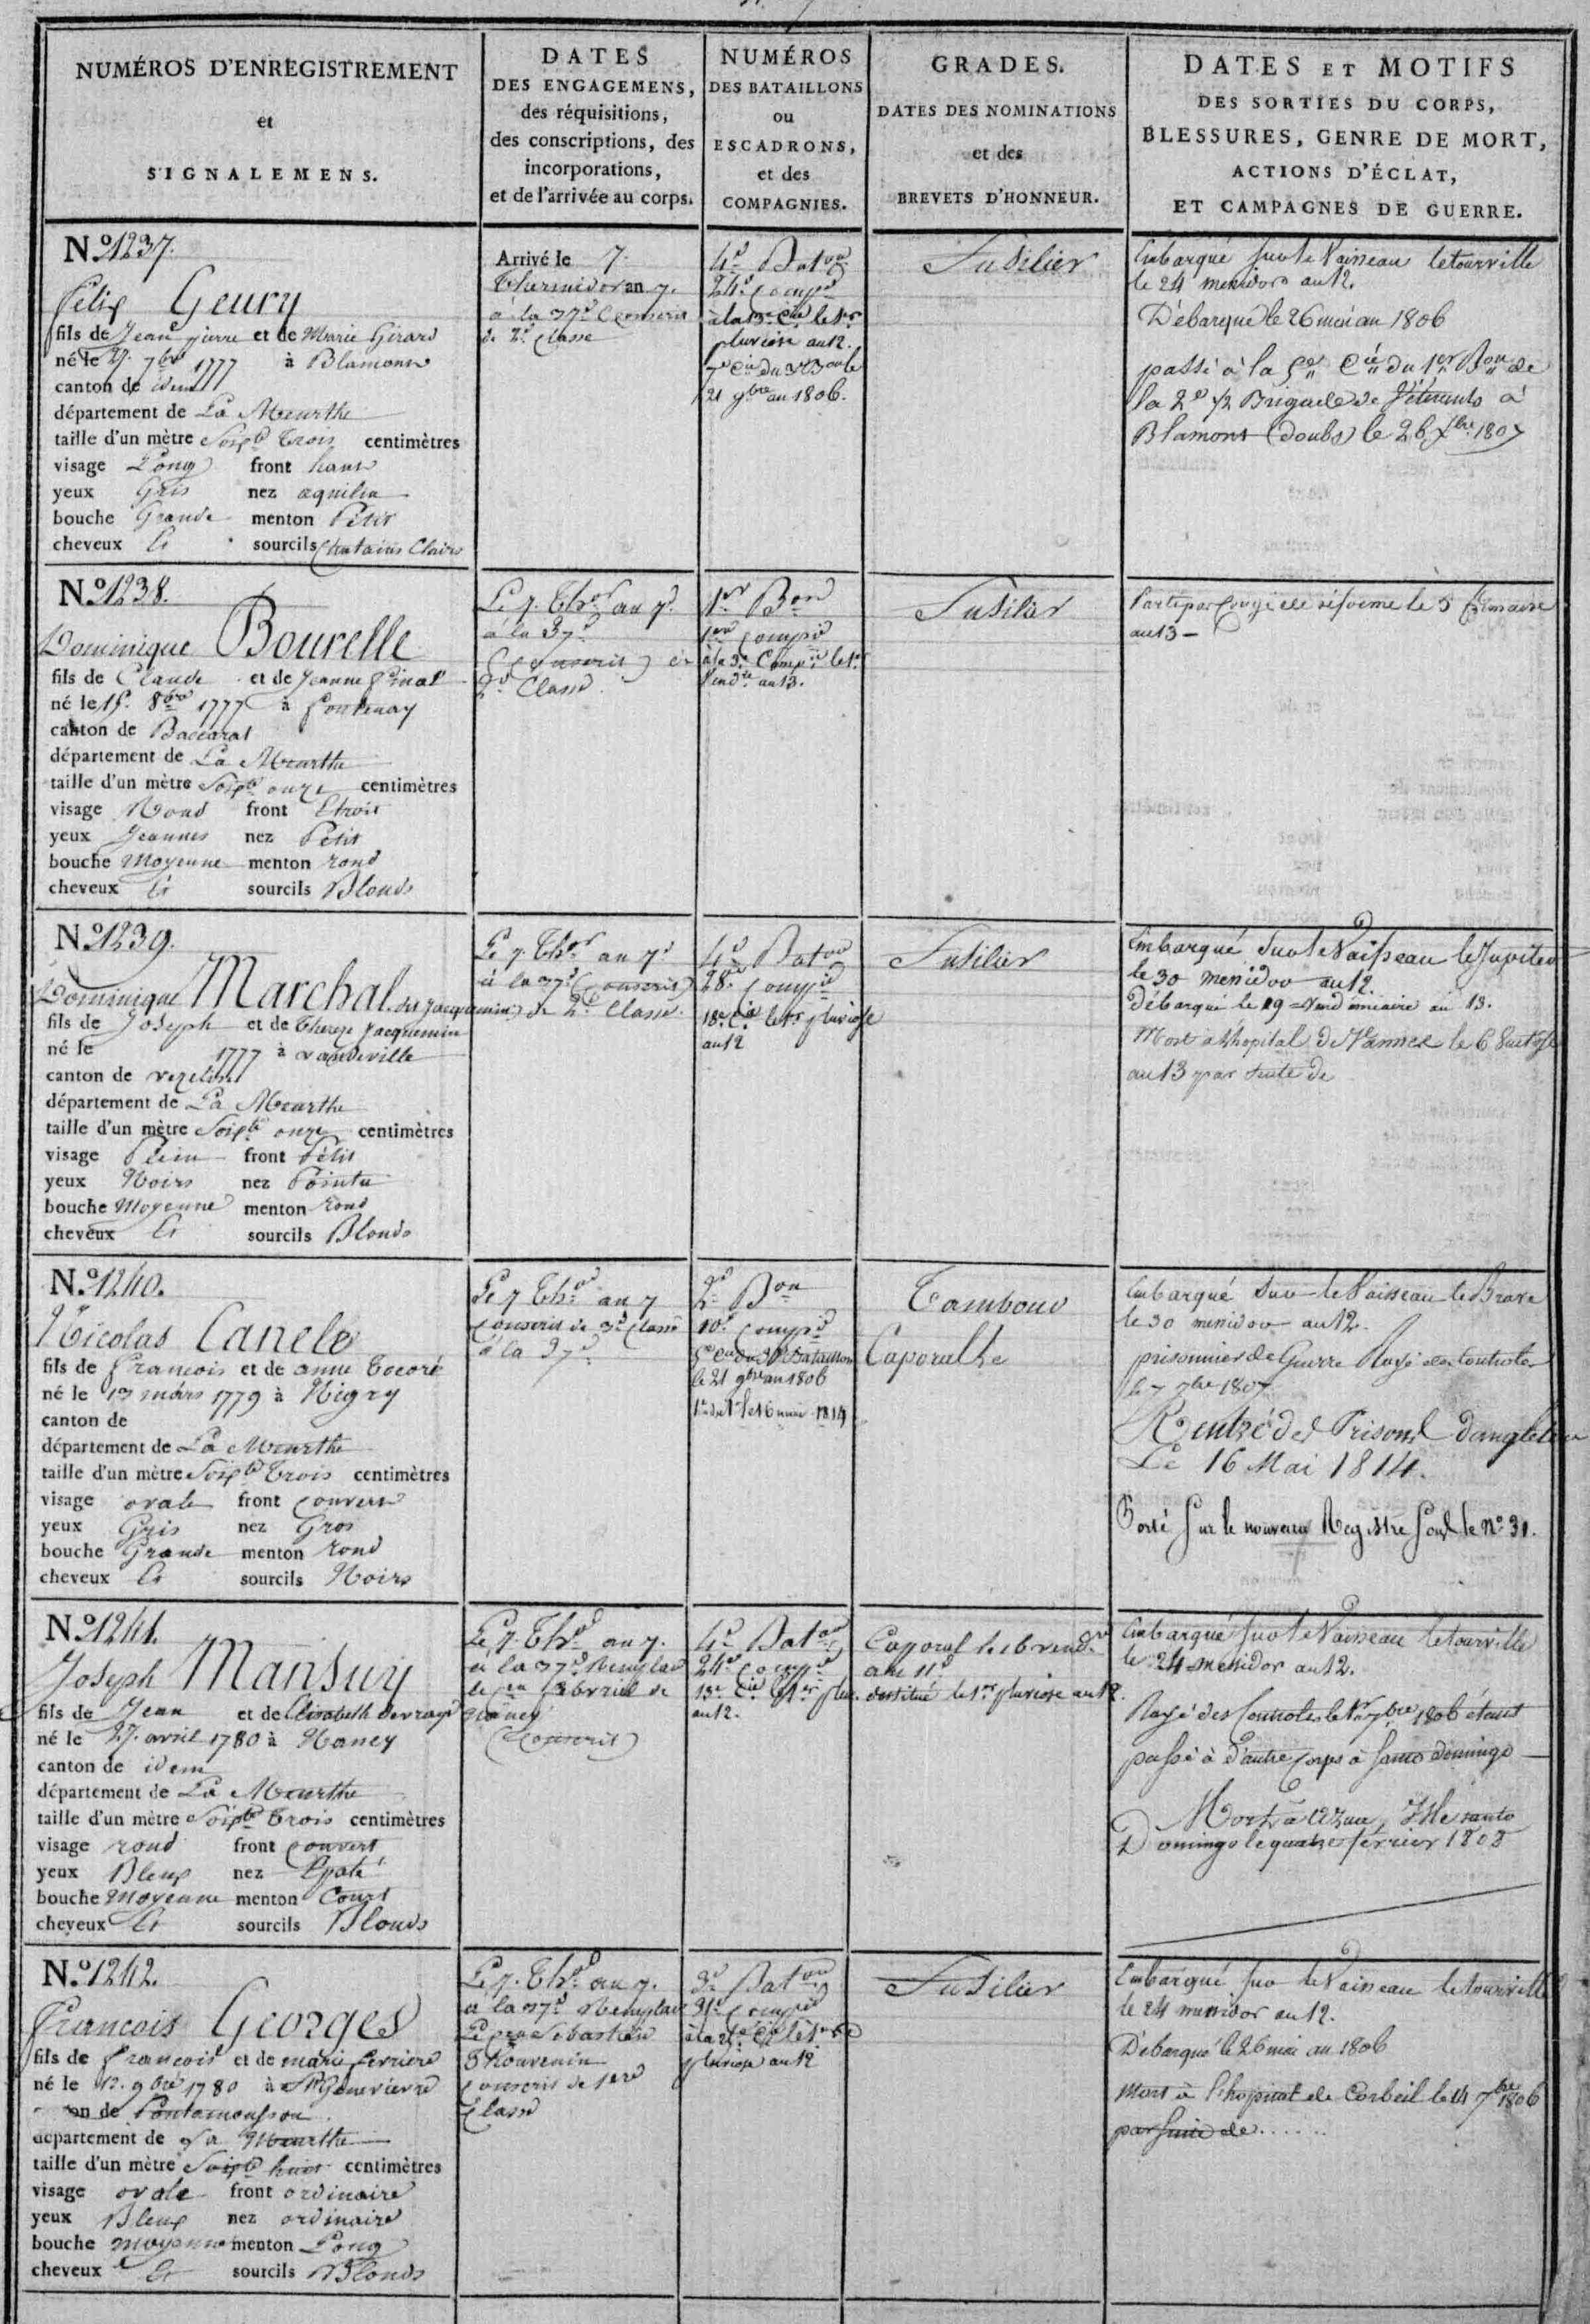 NUMÉROS D'ENREGISTREMENT
et
SIGNALEMENS.
DATES
DES ENGAGEMENS,
des réquisitions,
des conscriptions, des
incorporations,
et de l'arrivée au corps.
NUMÉROS
DES BATAILLONS
ou
ESCADRONS,
et des
COMPAGNIES.
GRADES.
DATES DES NOMINATIONS
et des
BREVETS D'HONNEUR.
DATES ET MOTIFS
DES SORTIES DU CORPS,
BLESSURES, GENRE DE MORT,
ACTIONS D'ÉCLAT,
ET CAMPAGNES DE GUERRE.
N.º 1237.
Félix Geury
fils de Jean pierre et de Marie Girard
né le 7bre 1777 à Blamont
canton de idem
département de La Meurthe
taille d'un mètre Soixte trois centimètres
visage Long front haut
yeux Gris nez aquilin
bouche Grande menton Petit
cheveux Et sourcils Chatains Clairs
Arrivé le 7.
Thermidor an 7.
à la 37e Conscrit
de 2e classe
4e Baton
24e compie
à la 13e Cie le 1er
pluviose an 12.
7e Cie du 3e Bon le
21 9bre an 1806.
Fusilier
Embarqué sur le Vaisseau le tourville
le 24 messidor an 12.
Débarqué le 26 mai an 1806
passé à la 5e Cie du 1er Bon de
la 2e 1/2 Brigade de Vétérants à
Blamont (doubs) le 26 Xbre 1807
N.º 1238.
Dominique Bourelle
fils de Claude et de Jeanne
né le 15. 8bre 1777 à fontenay
canton de Baccarat
département de La Meurthe
taille d'un mètre Soixte onze centimètres
visage Rond front Etroit
yeux Jeaunes nez Petit
bouche Moyenne menton rond
cheveux Et sourcils Blonds
Le 7. Thor an 7e
à la 37e
(Conscrit) de
2e Classe
1er Bon
1ere compie
à la 3e Compie le 1er
Vendre an 13.
Fusilier
Parti par Congé de réforme le 5 frimaire
an 13 –
N.º 1239.
Dominique Marchal. dit Jacquemin
fils de Joseph et de Therese Jacquemin
né le 1777 à vaudeville
canton de vezelise
département de La Meurthe
taille d'un mètre Soixte onze centimètres
visage Plein front Petit
yeux Noirs nez Pointu
bouche Moyenne menton rond
cheveux Et sourcils Blonds
Le 7. Thor an 7e
à la 37e (Conscrit)
de 2e Classe.
4e Baton
28e Compie
18e Cie le 1er pluviose
an 12
Fusilier
Embarqué sur le Vaisseau le Jupiter
le 30 messidor an 12.
Débarqué le 19 Vendémiaire an 13.
Mort à L'hopital de Vannes le 6
an 13 par suite de
N.º 1240.
Nicolas Canele
fils de francois et de anne
né le 13 mars 1779 à
canton de
département de La Meurthe
taille d'un mètre Soixte trois centimètres
visage ovale front Couvert
yeux Gris nez Gros
bouche Grande menton rond
cheveux Et sourcils Noirs
Le 7 Thor an 7
Conscrit de 3e Classe
à la 37e
2e Bon
10e compie
5e Cie du 3e Bataillon
le 21 9bre an 1806
1re du 1er le 16 mai 1814
Tambour
Caporal le
Embarqué sur le Vaisseau le Brave
le 30 messidor an 12.
prisonnier de Guerre Rayé des Controles
le 7 7bre 1807
Rentré des Prisons d'angleterre
Le 16 Mai 1814.
Porté sur le nouveau Registre sous le nº 31.
N.º 1241.
Joseph Mansuy
fils de Jean et de Elisabeth
né le 27. avril 1780 à Nancy
canton de idem
département de La Meurthe
taille d'un mètre Soixte trois centimètres
visage rond front couvert
yeux Bleux nez Epaté
bouche Moyenne menton Court
cheveux Et sourcils Blonds
Le 7. Thor an 7.
à la 37e Remplace
le de
Nancy
(Conscrit)
4e Baton
24e compie
13e Cie le 1er pluv.
an 12.
Caporal le 16 vendre
an 11e
destitué le 1er pluviose an 12.
Embarqué sur le Vaisseau le tourville
le 24 messidor an 12.
Rayé des Controles le 1er 7bre 1806 étant
passé à d'autre Corps à santo domingo
Mort à azua, Isle santo
Domingo le quatre février 1808
N.º 1242.
Francois Georges
fils de francois et de marie ferriere
né le 12. 9bre 1780 à Ste Genevieve
on de Pontamousson
département de La Meurthe
taille d'un mètre Soixte huit centimètres
visage ovale front ordinaire
yeux Bleux nez ordinaire
bouche moyenne menton Long
cheveux Et sourcils Blonds
Le 7. Thor an 7.
à la 37e Remplace
Le Sebastien
Thouvenin
conscrit de 1ere
Classe
3e Baton
31e compie
à la 25e Cie le 1er
pluviose an 12
Fusilier
Embarqué sur le Vaisseau le tourville
le 24 messidor an 12.
Débarqué le 26 mai an 1806
Mort à l'hopital de Corbeil le 14 7bre 1806
par suite de ......